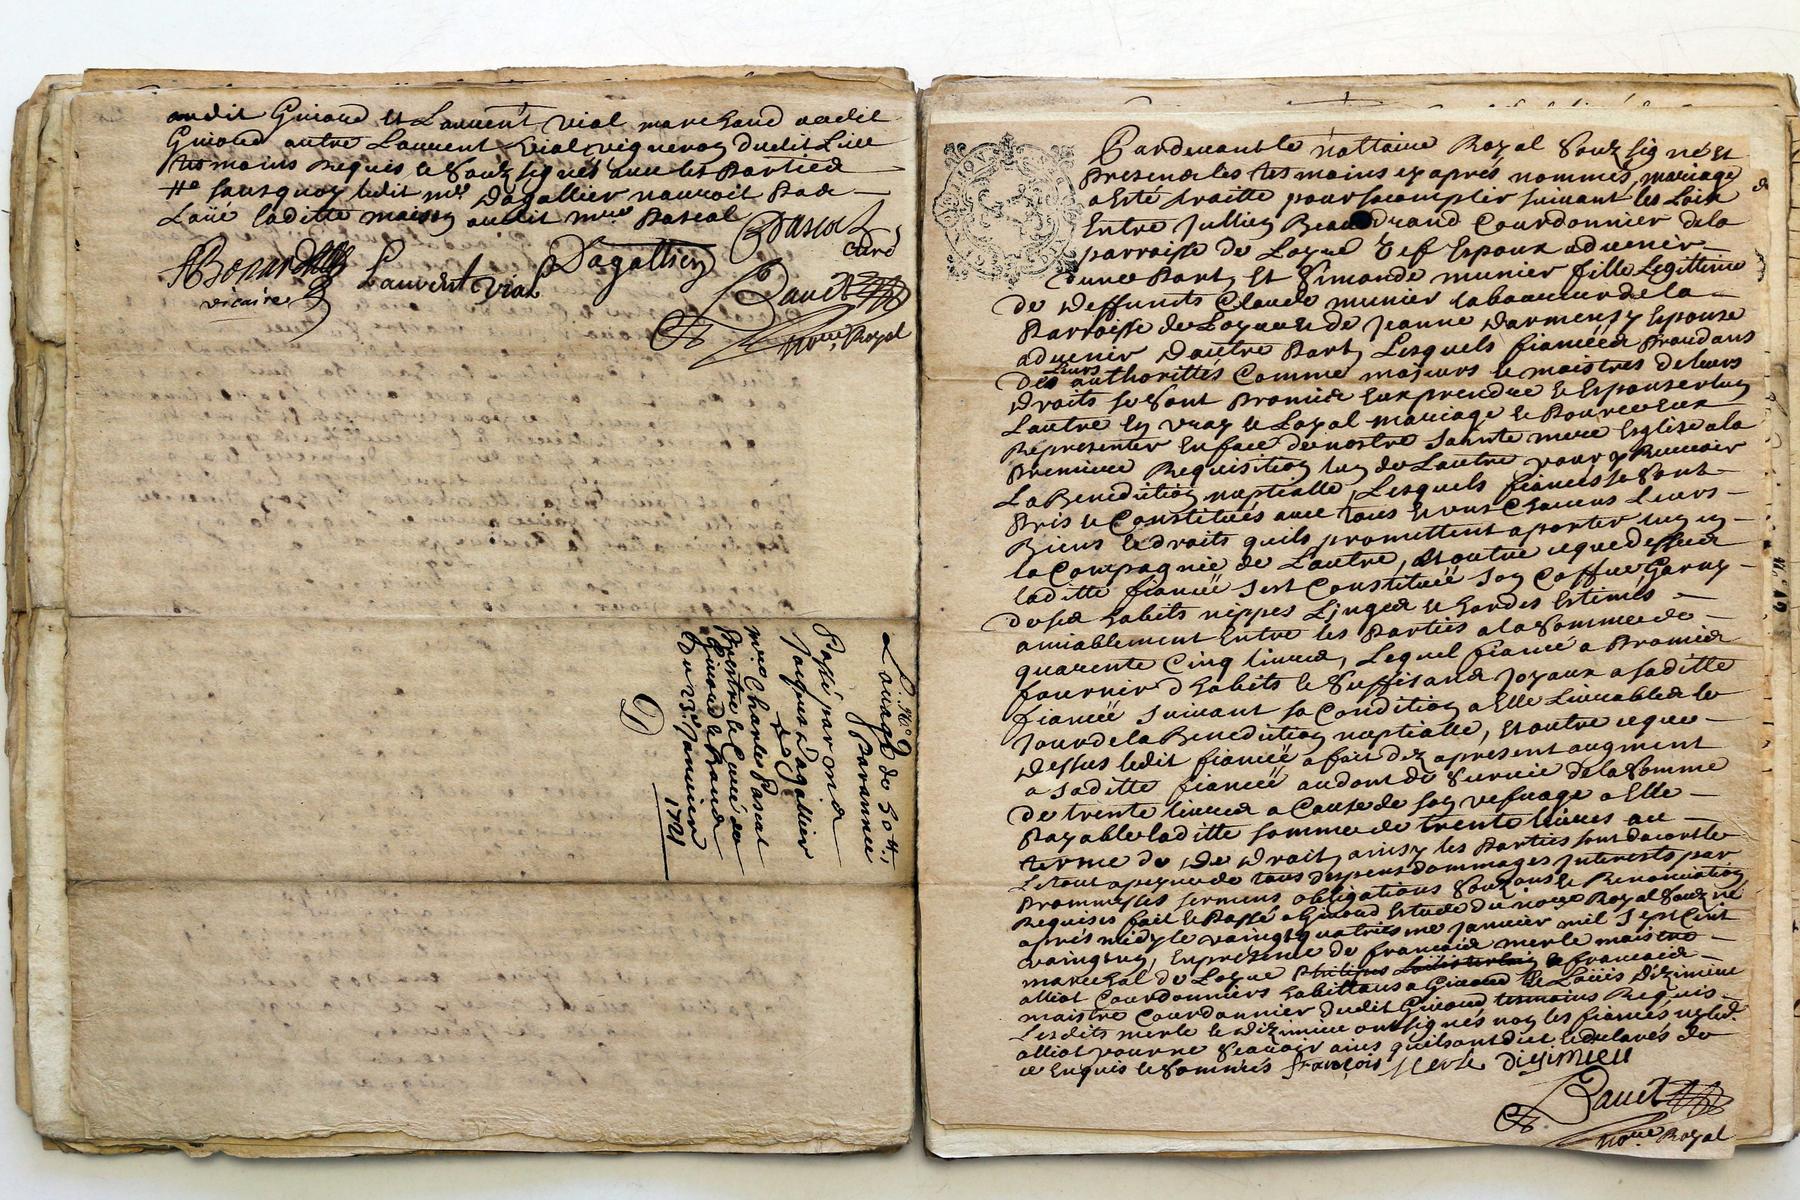 audit Giraud et Laurent Vial marchand audit
Giraud autre Laurent Vial vigneron dudit Lieu
tesmoins Requis et Soubsignés avec les Parties
ledit mre Dagallier nauroit Pas
Laüé laditte maison audit mre Pascal
Pascal
curé
vicaire
Laurent vial
Dagallier
nore Royal
Louage de 50 ʰ,
Parannée
Passé par mre
Jacques Dagallier
A
mre Charles Pascal
Prestre et Curé de
Giraud le
Du 23e Janvier
1721
Pardevant le nottaire Royal Soubsigné et
Presens les tesmoins cy aprés nommés, mariage
a esté traitté pour sacomplir suivant les Loix
Entre Jullien Beaudrand Courdonnier de la
parroisse de Loyue Epoux advenir
dune Part, Et Simande munier fille Legittime
de deffunts Claude munier laboureur de la
Parroisse de Loyue et de Jeanne Darmensy Epouse
advenir dautre Part, Lesquels fiancés Procedans
de leurs authorittés Comme majeurs et maistres de leurs
droits se sont Promis Eux prendre et Espouser lun
Lautre En vray et Loyal mariage et Pour ce Eux
Representer En face de nostre Sainte mere Eglise a la
Premiere Requisition lun de Lautre pour y Recevoir
La Benediction nuptialle, Lesquels fiancés se sont
Pris et Constitués avec tous et uns Chacuns Leurs
Biens et droits quils promettent aporter lun en
la Compagnie de Lautre, Et outre ce que dessus
laditte fiancée sest Constituée son Coffre Garny
de ses habits nippes Linges et hardes Estimés
amiablement Entre les Parties a la Somme de
quarente Cinq livres, Lequel fiancé a Promis
fournir dhabits et Suffisans Joyaux a saditte
fiancée suivant sa Condition a Elle Livrables le
Jour de la Benediction nuptialle, Et outre ce que
dessus ledit fiancé a fait dez apresent augment
a saditte fiancée au dont de Survie de la Somme
de trente livres a Cause de son vefuage a Elle
Payable laditte somme de trente livres au
terme de de Droit, ainsy les Parties sont dacort le
Le tout a peyne de tous despens dommages Interests par
Prommesses sermens obligations Soubzmis et Renonciation
Requises fait et Passé a Giraud Estude du nore Royal Soubzné
aprés midy le vaingt quatriesme Janvier mil sept Cent
vaingt un, En présence de francois merle maistre
marechal de Loyue et francois
alliot Courdonniers habittans a Giraud et Loüis Dizimieu
maistre Courdonnier dudit Giraud tesmoins Requis
Lesdits merle et Dizimieu ont signés non les fiancés ny led
alliot pour ne Scavoir ains quils ont dit et declarés de
ce Enquis et Sommés francois Merle dizimieu
nore Royal